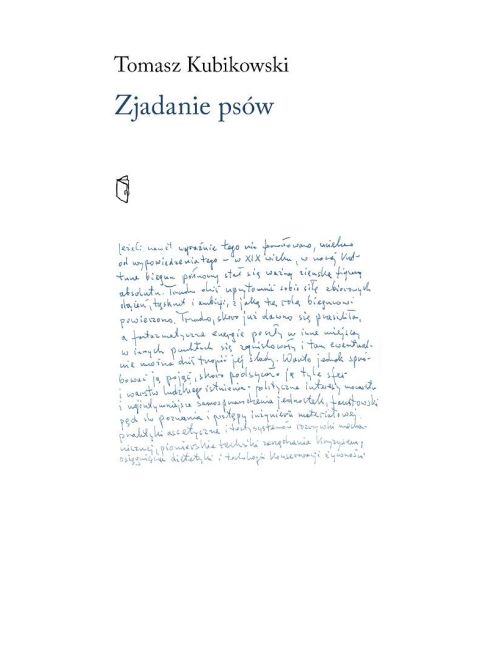 Tomasz Kubikowski
Zjadanie psów
Jeżeli nawet wyraźnie tego nie formułowano, unikano
od wypowiedzenia tego – w XIX wieku, w naszej kul-
turze biegun północny stał się ważną ziemską figurą
absolutu. Trudno dziś uprzytomnić sobie siłę zbiorowych
dążeń, tęsknot i ambicji, z jaką tę rolę biegunowi
powierzono. Trudno, skoro już dawno się przesiliła,
a fantazmatyczne energie poszły w inne miejsca,
w innych punktach się ogniskowały i tam ewentual-
nie można dziś tropić jej ślady. Warto jednak spró-
bować ją pojąć, skoro podsycało ją tyle sfer
i warstw ludzkiego istnienia: polityczne interesy mocarstw
i najintymniejsze samospraw­dzenia jednostek, faustowski
pęd do poznania i postępy inżynierii materiałowej,
praktyki ascetyczne i rozrywki
pionierskie techniki zarządzania kryzysem,
osiągnięcia dietetyki i technologii konserwacji żywności